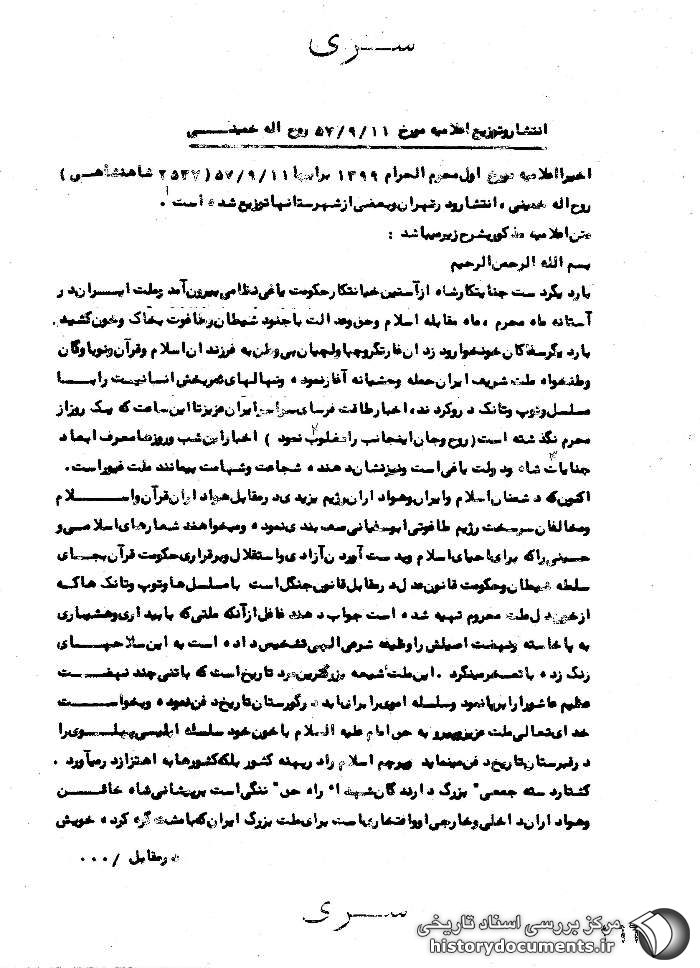 سری
انتشار و توزیع اعلامیه مورخ ۵۷/۹/۱۱ روح اله خمینی
اخیرا اعلامیه مورخ اول محرم الحرام ۱۳۹۹ برابر با ۵۷/۹/۱۱ (۲۵۳۷ شاهنشاهی)
روح اله خمینی، انتشار و در تهران و بعضی از شهرستانها توزیع شده است.
متن اعلامیه مذکور بشرح زیر میباشد :
بسم الله الرحمن الرحیم
بار دیگر دست جنایتکار شاه از آستین خیانتکار حکومت یاغی نظامی بیرون آمد و ملت ایران در
آستانه ماه محرم، ماه مقابله اسلام و حق و عدالت با جنود شیطان و طاغوت بخاک و خون کشید.
بار دیگر سفاکان خونخوار و دزدان غارتگر و چپاولچیان بی وطن به فرزندان اسلام و قرآن و نوباوگان
وطنخواه ملت شریف ایران حمله وحشیانه آغاز نموده و نهالهای ثمربخش انسانیت را با
مسلسل و توپ و تانک درو کردند، اخبار طاقت فرسای سراسر ایران عزیز تا این ساعت که یک روز از
محرم نگذشته است (روح و جان اینجانب را مغلوب نمود) اخبار این شب و روزها معرف ابعاد
جنایات شاه و دولت یاغی است و نیز نشاندهنده شجاعت و شهامت بیمانند ملت غیور است.
اکنون که دشمنان اسلام و ایران و هواداران رژیم یزیدی در مقابل هواداران قرآن و اسلام
و مخالفان سرسخت رژیم طاغوتی ابوسفیانی صف بندی نموده و میخواهند شعارهای اسلامی و
حسینی را که برای احیای اسلام و بدست آوردن آزادی و استقلال و برقراری حکومت قرآن بجای
سلطه شیطان و حکومت قانون عدل در مقابل قانون جنگل است با مسلسل ها و توپ و تانک ها که
از خون دل ملت محروم تهیه شده است جواب دهند غافل از آنکه ملتی که با بیداری و هشیاری
به پا خاسته و نهضت اصیلش را وظیفه شرعی الهی تشخیص داده است به این سلاحهای
زنگ زده با تمسخر مینگرد. این ملت شیعه بزرگترین مرد تاریخ است که با تنی چند نهضت
عظیم عاشورا را برپا نمود و سلسله اموی را برای ابد در گورستان تاریخ دفن نمود و بخواست
خدای تعالی ملت عزیز و پیرو به حق امام علیه السلام با خون خود سلسله ابلیسی پهلوی را
در قبرستان تاریخ دفن مینماید و پرچم اسلام را در پهنه کشور بلکه کشورها به اهتزاز درمیآورد.
کشتار دسته جمعی" بزرگ دارندگان شهداء راه حق" ننگی است بر پیشانی شاه خائن
و هواداران داخلی و خارجی او و افتخاری است برای ملت بزرگ ایران که با مشت گره کرده خویش
در مقابل /...
سری
مرکز بررسی اسناد تاریخی
historydocuments.ir